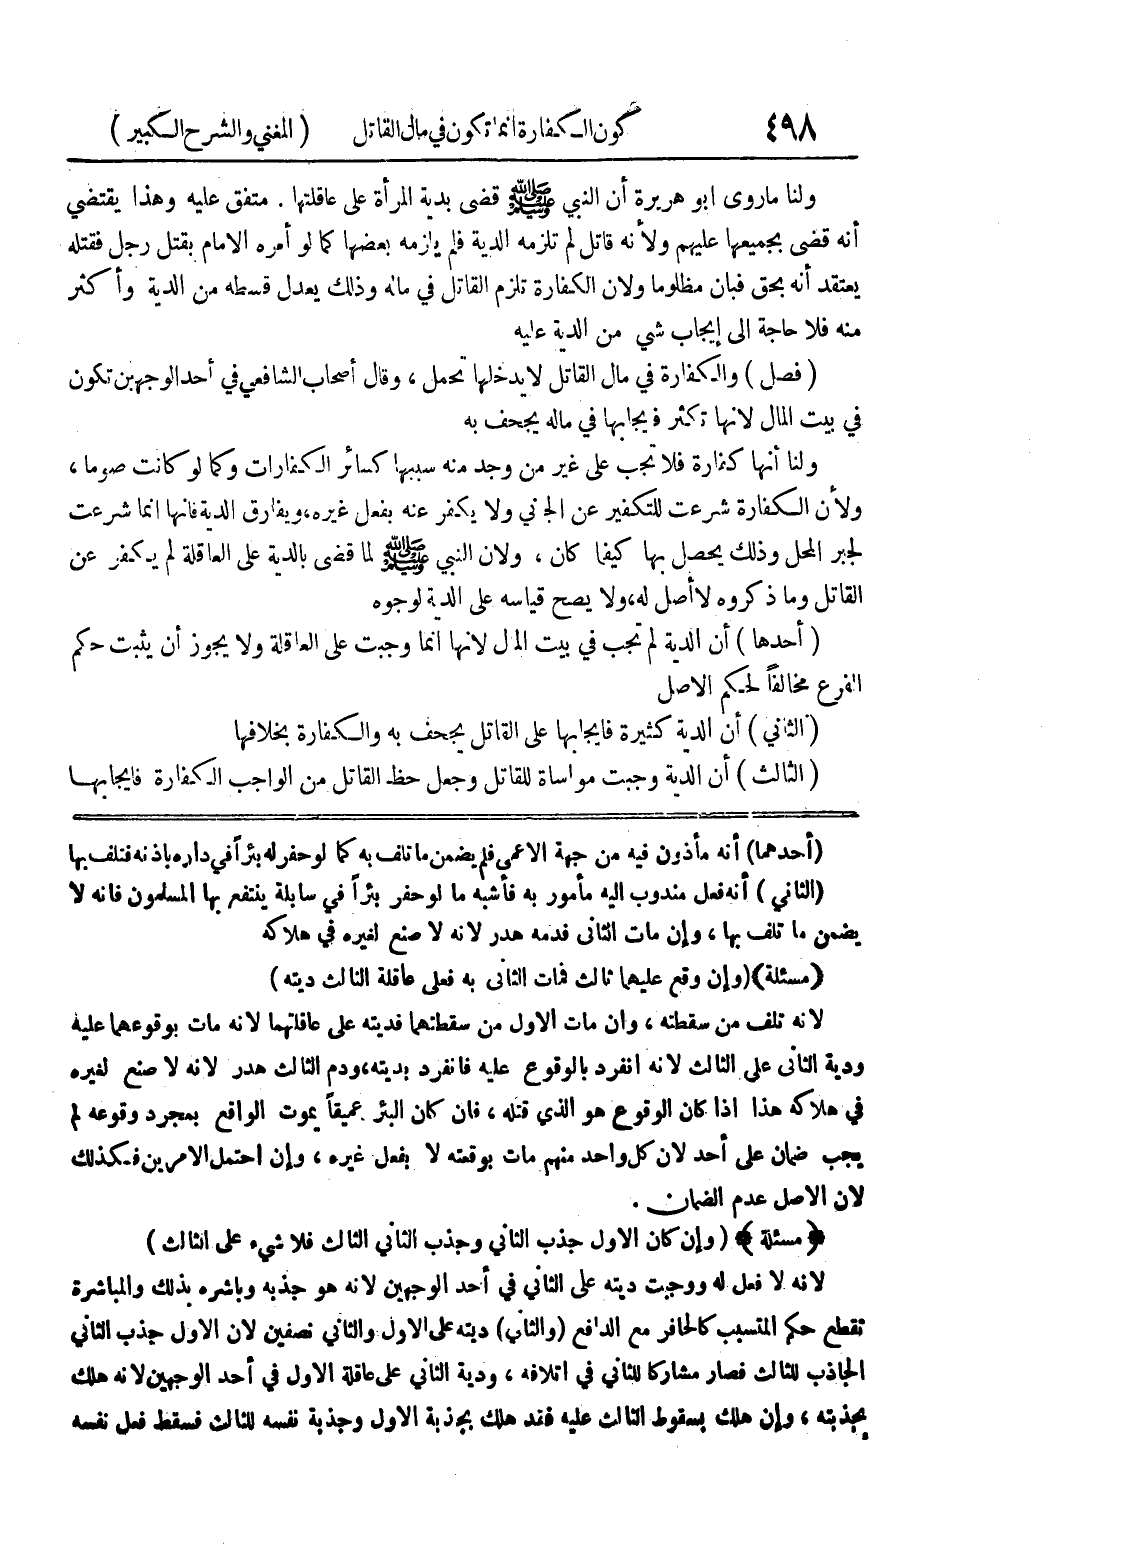 ٤٩٨ كون الكفارة انما تكون في مال القاتل ( المغني والشرح الكبير )
ولنا ماروى ابو هريرة أن النبي ﷺ قضى بدية المرأة على عاقلتها . متفق عليه وهذا يقتضي
أنه قضى بجميعها عليهم ولأنه قاتل لم تلزمه الدية فلم يلزمه بعضها كما لو أمره الامام بقتل رجل فقتله
يعتقد أنه بحق فبان مظلوما ولان الكفارة تلزم القاتل في ماله وذلك يعدل قسطه من الدية وأكثر
منه فلا حاجة الى إيجاب شي من الدية عليه
( فصل ) والكفارة في مال القاتل لايدخلها تحمل ، وقال أصحاب الشافعي في أحد الوجهين تكون
في بيت المال لانها تكثر فايجابها في ماله يجحف به
ولنا أنها كفارة فلا تجب على غير من وجد منه سببها كسائر الكفارات وكما لو كانت صوما ،
ولأن الكفارة شرعت للتكفير عن الجاني ولا يكفر عنه بفعل غيره، ويفارق الدية فانها انما شرعت
لجبر المحل وذلك يحصل بها كيفما كان ، ولان النبي ﷺ لما قضى بالدية على العاقلة لم يكفر عن
القاتل وما ذكروه لا أصل له، ولا يصح قياسه على الدية لوجوه
( أحدها ) أن الدية لم تجب في بيت المال لانها انما وجبت على العاقلة ولا يجوز أن يثبت حكم
الفرع مخالفاً لحكم الاصل
( الثاني ) أن الدية كثيرة فايجابها على القاتل يجحف به والكفارة بخلافها
( الثالث ) أن الدية وجبت مواساة للقاتل وجعل حظ القاتل من الواجب الكفارة فايجابها
(أحدهما) أنه مأذون فيه من جهة الاعمى فلم يضمن ما تلف به كما لو حفر له بئراً في داره باذنه فتلف بها
(الثاني ) أنه فعل مندوب اليه مأمور به فأشبه ما لو حفر بئراً في سابلة ينتفع بها المسلمون فانه لا
يضمن ما تلف بها ، وإن مات الثانى فدمه هدر لانه لا صنع لغيره في هلاكه
﴿مسئلة﴾(وإن وقع عليهما ثالث فمات الثانى به فعلى عاقلة الثالث ديته )
لانه تلف من سقطته ، وان مات الاول من سقطتهما فديته على عاقلتهما لانه مات بوقوعهما عليه
ودية الثانى على الثالث لانه انفرد بالوقوع عليه فانفرد بديته، ودم الثالث هدر لانه لا صنع لغيره
في هلاكه هذا اذا كان الوقوع هو الذي قتله ، فان كان البئر عميقاً يموت الواقع بمجرد وقوعه لم
يجب ضمان على أحد لان كل واحد منهم مات بوقعته لا بفعل غيره ، وإن احتمل الامرين فكذلك
لان الاصل عدم الضمان .
﴿ مسئلة ﴾ ( وإن كان الاول جذب الثاني وجذب الثاني الثالث فلا شيء على الثالث )
لانه لا فعل له ووجبت ديته على الثاني في أحد الوجهين لانه هو جذبه وباشره بذلك والمباشرة
تقطع حكم المتسبب كالحافر مع الدافع (والثاني) ديته على الاول والثاني نصفين لان الاول جذب الثاني
الجاذب للثالث فصار مشاركا للثاني في اتلافه ، ودية الثاني على عاقلة الاول في أحد الوجهين لانه هلك
بجذبته ، وإن هلك بسقوط الثالث عليه فقد هلك بجذبة الاول وجذبة نفسه للثالث فسقط فعل نفسه